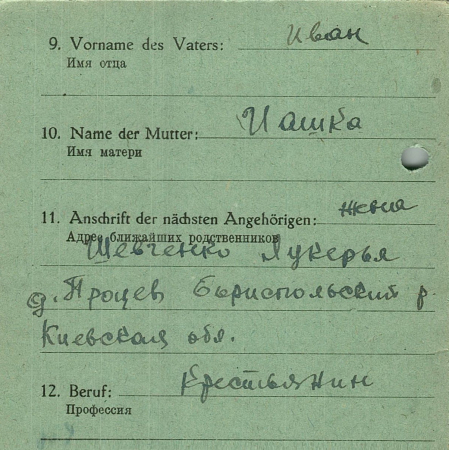 9. Vorname des Vaters: Иван
Имя отца
10. Name der Mutter: Иашка
Имя матери
11. Anschrift der nächsten Angehörigen: жена
Адрес ближайших родственников
Шевченко Лукерья
д. Процев Бориспольский р.
Киевская обл.
12. Beruf: Крестьянин
Профессия